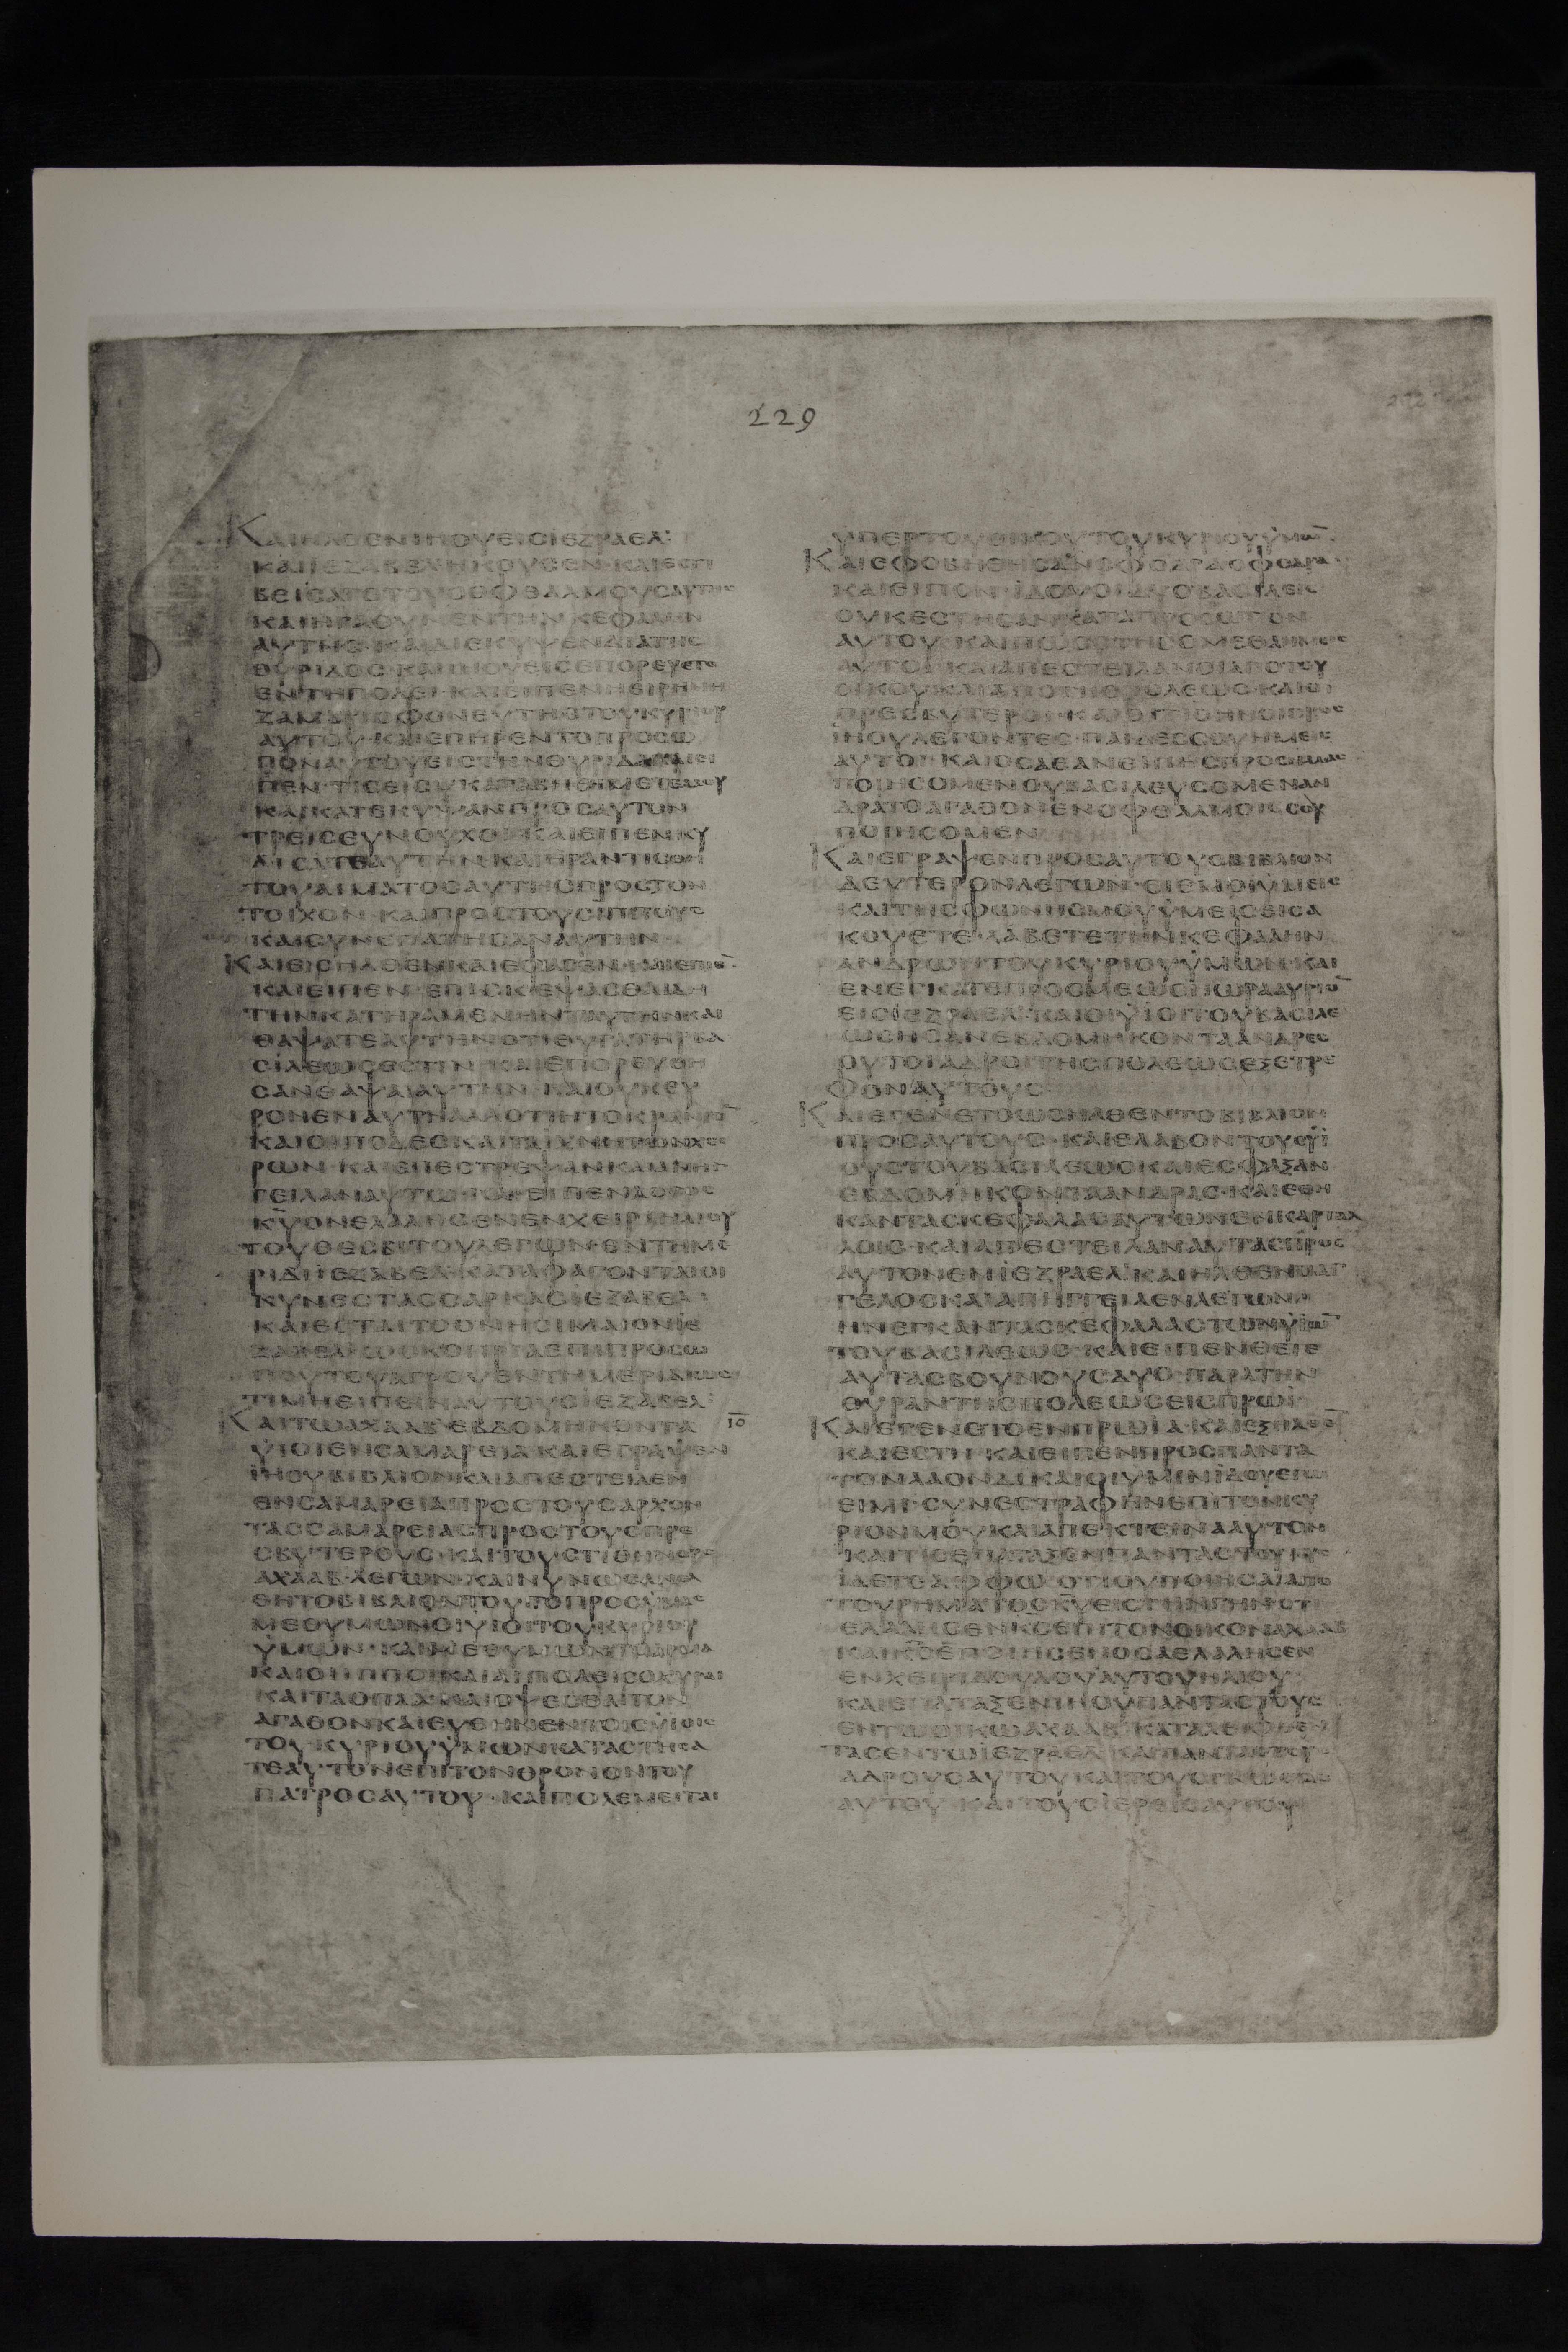 229
ΚΑΙΗΛΘΕΝΙΗΟΥΕΙΣΙΕΖΡΑΕΛ
ΚΑΙΙΕΖΑΒΕΛΗΚΟΥCΕΝ·ΚΑΙΕCΤΙ
ΒΕΙCΑΤΟΤΟΥCΟΦΘΑΛΜΟΥCΑΥΤΗC
ΚΑΙΗΓΑΘΥΝΕΝΤΗΝΚΕΦΑΛΗΝ
ΑΥΤΗC·ΚΑΙΔΙΕΚΥΨΕΝΔΙΑΤΗC
ΘΥΡΙΔΟC·ΚΑΙΙΗΟΥΕΙCΕΠΟΡΕΥΕΤΟ
ΕΝΤΗΠΟΛΕΙ·ΚΑΙΕΙΠΕΝΗΕΙΡΗΝΗ
ΖΑΜΒΡΙΟΦΟΝΕΥΤΗCΤΟΥΚΥΡΙΟΥ
ΑΥΤΟΥ·ΚΑΙΕΠΗΡΕΝΤΟΠΡΟCΩ
ΠΟΝΑΥΤΟΥΕΙCΤΗΝΘΥΡΙΔΑΚΑΙΕΙ
ΠΕΝ·ΤΙCΕΙCΥΚΑΤΑΒΗΘΙΜΕΤΕΜΟΥ
ΚΑΙΚΑΤΕΚΥΨΑΝΠΡΟCΑΥΤΟΝ
ΤΡΕΙCΕΥΝΟΥΧΟΙ·ΚΑΙΕΙΠΕΝΚΥ
ΛΙCΑΤΕΑΥΤΗΝ·ΚΑΙΗΡΑΝΤΙCΘΗ
ΤΟΥΑΙΜΑΤΟCΑΥΤΗCΠΡΟCΤΟΝ
ΤΟΙΧΟΝ·ΚΑΙΠΡΟCΤΟΥCΙΠΠΟΥC
ΚΑΙCΥΝΕΠΑΤΗCΑΝΑΥΤΗΝ
ΚΑΙΕΙCΗΛΘΕΝΚΑΙΕΦΑΓΕΝ·ΚΑΙΕΠΙΕ̅
ΚΑΙΕΙΠΕΝ·ΕΠΙCΚΕΨΑCΘΑΙΔΗ
ΤΗΝΚΑΤΗΡΑΜΕΝΗΝΤΑΥΤΗΝΚΑΙ
ΘΑΨΑΤΕΑΥΤΗΝΟΤΙΘΥΓΑΤΗΡΒΑ
CΙΛΕΩCΕCΤΙΝ·ΚΑΙΕΠΟΡΕΥΘΗ
CΑΝΘΑΨΑΙΑΥΤΗΝ·ΚΑΙΟΥΚΕΥ
ΡΟΝΕΝΑΥΤΗΑΛΛΟΤΙΗΤΟΚΡΑΝΙΟ̅
ΚΑΙΟΙΠΟΔΕCΚΑΙΤΑΙΧΝΗΤΩΝΧΕΙ
ΡΩΝ·ΚΑΙΕΠΕCΤΡΕΨΑΝΚΑΙΑΝΗΓ
ΓΕΙΛΑΝΑΥΤΩ·ΚΑΙΕΙΠΕΝΛΟΓΟC
ΚΥΟΝΕΛΑΛΗCΕΝΕΝΧΕΙΡΙΗΛΙΟΥ
ΤΟΥΘΕCΒΙΤΟΥΛΕΓΩΝ·ΕΝΤΗΜΕ
ΡΙΔΙΙΕΖΑΒΕΛΚΑΤΑΦΑΓΟΝΤΑΙΟΙ
ΚΥΝΕCΤΑCCΑΡΚΑCΙΕΖΑΒΕΛ
ΚΑΙΕCΤΑΙΤΟΘΝΗCΙΜΑΙΟΝΙΕ
ΖΑΒΕΛΩCΚΟΠΡΙΑΕΠΙΠΡΟCΩ
ΠΟΥΤΟΥΑΓΡΟΥΕΝΤΗΜΕΡΙΔΙΩC
ΤΕΜΗΕΙΠΕΙΝΑΥΤΟΥCΙΕΖΑΒΕΛ
ΚΑΙΤΩΑΧΑΑΒΕΒΔΟΜΗΚΟΝΤΑ 10
ΥΙΟΙΕΝCΑΜΑΡΕΙΑΚΑΙΕΓΡΑΨΕΝ
ΙΗΟΥΒΙΒΛΙΟΝΚΑΙΑΠΕCΤΕΙΛΕΝ
ΕΝCΑΜΑΡΕΙΑΠΡΟCΤΟΥCΑΡΧΟΝ
ΤΑCCΑΜΑΡΕΙΑCΠΡΟCΤΟΥCΠΡΕ
CΒΥΤΕΡΟΥC·ΚΑΙΤΟΥCΤΙΘΗΝΟΥC
ΑΧΑΑΒ·ΛΕΓΩΝ·ΚΑΙΝΥΝΩCΕΑΝΕΛ
ΘΗΤΟΒΙΒΛΙΟΝΤΟΥΤΟΠΡΟCΥΜΑC
ΜΕΘΥΜΩΝΟΙΥΙΟΙΤΟΥΚΥΡΙΟΥ
ΥΜΩΝ·ΚΑΙΜΕΘΥΜΩΝΤΟΑΡΜΑ
ΚΑΙΟΙΙΠΠΟΙΚΑΙΑΙΠΟΛΕΙCΟΧΥΡΑΙ
ΚΑΙΤΑΟΠΛΑΚΑΙΟΨΕCΘΕΤΟΝ
ΑΓΑΘΟΝΚΑΙΕΥΘΗΚΕΝΤΟΙCΥΙΟΙC
ΤΟΥΚΥΡΙΟΥΥΜΩΝΚΑΤΑCΤΗCΑ
ΤΕΑΥΤΟΝΕΠΙΤΟΝΘΡΟΝΟΝΤΟΥ
ΠΑΤΡΟCΑΥΤΟΥ·ΚΑΙΠΟΛΕΜΕΙΤΑΙ
ΥΠΕΡΤΟΥΟΙΚΟΥΤΟΥΚΥΡΙΟΥΥΜΩ̅
ΚΑΙΕΦΟΒΗΘΗCΑΝCΦΟΔΡΑCΦΟΔΡΑ
ΚΑΙΕΙΠΟΝ·ΙΔΟΥΟΙΔΥΟΒΑCΙΛΕΙC
ΟΥΚΕCΤΗCΑΝΚΑΤΑΠΡΟCΩΠΟΝ
ΑΥΤΟΥ·ΚΑΙΠΩCCΤΗCΟΜΕΘΑΗΜΕΙC
ΑΥΤΟΙ·ΚΑΙΑΠΕCΤΕΙΛΑΝΟΙΑΠΟΤΟΥ
ΟΙΚΟΥΚΑΙΑΠΟΤΗCΠΟΛΕΩC·ΚΑΙΟΙ
ΠΡΕCΒΥΤΕΡΟΙ·ΚΑΙΟΙΤΙΘΗΝΟΙΠΡΟC
ΙΗΟΥΛΕΓΟΝΤΕC·ΠΑΙΔΕCCΟΥΗΜΕΙC
ΑΥΤΟΙ·ΚΑΙΟCΑΕΑΝΕΙΠΗCΠΡΟCΗΜΑC
ΠΟΙΗCΟΜΕΝΟΥΒΑCΙΛΕΥCΟΜΕΝΑΝ
ΔΡΑΤΟΑΓΑΘΟΝΕΝΟΦΘΑΛΜΟΙCCΟΥ
ΠΟΙΗCΟΜΕΝ
ΚΑΙΕΓΡΑΨΕΝΠΡΟCΑΥΤΟΥCΒΙΒΛΙΟΝ
ΔΕΥΤΕΡΟΝΛΕΓΩΝ·ΕΙΕΜΟΙΥΜΕΙC
ΚΑΙΤΗCΦΩΝΗCΜΟΥΥΜΕΙCΕΙCΑ
ΚΟΥΕΤΕΛΑΒΕΤΕΤΗΝΚΕΦΑΛΗΝ
ΑΝΔΡΩΝΤΟΥΚΥΡΙΟΥΥΜΩΝ·ΚΑΙ
ΕΝΕΓΚΑΤΕΠΡΟCΜΕΩCΗΩΡΑΑΥΡΙΟ̅
ΕΙCΙΕΖΡΑΕΛ·ΚΑΙΟΙΥΙΟΙΤΟΥΒΑCΙΛΕ
ΩCΗCΑΝΕΒΔΟΜΗΚΟΝΤΑΑΝΔΡΕC
ΟΥΤΟΙΑΔΡΟΙΤΗCΠΟΛΕΩCΕΞΕΤΡΕ
ΦΟΝΑΥΤΟΥC
ΚΑΙΕΓΕΝΕΤΟΩCΗΛΘΕΝΤΟΒΙΒΛΙΟΝ
ΠΡΟCΑΥΤΟΥC·ΚΑΙΕΛΑΒΟΝΤΟΥCΥΙ
ΟΥCΤΟΥΒΑCΙΛΕΩCΚΑΙΕCΦΑΞΑΝ
ΕΒΔΟΜΗΚΟΝΤΑΑΝΔΡΑC·ΚΑΙΕΘΗ
ΚΑΝΤΑCΚΕΦΑΛΑCΑΥΤΩΝΕΝΚΑΡΤΑΛ
ΛΟΙC·ΚΑΙΑΠΕCΤΕΙΛΑΝΑΥΤΑCΠΡΟC
ΑΥΤΟΝΕΝΙΕΖΡΑΕΛ·ΚΑΙΗΛΘΕΝΟΑΓ
ΓΕΛΟCΚΑΙΑΠΗΓΓΕΙΛΕΝΛΕΓΩΝ
ΗΝΕΓΚΑΝΤΑCΚΕΦΑΛΑCΤΩΝΥΙΩ̅
ΤΟΥΒΑCΙΛΕΩC·ΚΑΙΕΙΠΕΝΘΕΤΕ
ΑΥΤΑCΒΟΥΝΟΥCΔΥΟ·ΠΑΡΑΤΗΝ
ΘΥΡΑΝΤΗCΠΟΛΕΩCΕΙCΠΡΩΙ
ΚΑΙΕΓΕΝΕΤΟΕΝΠΡΩΙΑ·ΚΑΙΕΞΗΛΘΕ̅
ΚΑΙΕCΤΗ·ΚΑΙΕΙΠΕΝΠΡΟCΠΑΝΤΑ
ΤΟΝΛΑΟΝΔΙΚΑΙΟΙΥΜΙΝΙΔΟΥΕΓΩ
ΕΙΜΙ·CΥΝΕCΤΡΑΦΗΝΕΠΙΤΟΝΚΥ
ΡΙΟΝΜΟΥΚΑΙΑΠΕΚΤΕΙΝΑΑΥΤΟΝ
ΚΑΙΤΙCΕΠΑΤΑΞΕΝΠΑΝΤΑCΤΟΥΤΟΥC
ΙΔΕΤΕΑΦΦΩΟΤΙΟΥΠΕCΕΙΤΑΙΑΠΟ
ΤΟΥΡΗΜΑΤΟCΚΥΕΙCΤΗΝΓΗΝΟΥ
ΕΛΑΛΗCΕΝΚCΕΠΙΤΟΝΟΙΚΟΝΑΧΑΑΒ
ΚΑΙΚCΕΠΟΙΗCΕΝΟCΑΕΛΑΛΗCΕΝ
ΕΝΧΕΙΡΙΔΟΥΛΟΥΑΥΤΟΥΗΛΙΟΥ
ΚΑΙΕΠΑΤΑΞΕΝΙΗΟΥΠΑΝΤΑCΤΟΥC
ΕΝΤΩΟΙΚΩΑΧΑΑΒ·ΚΑΤΑΛΕΙΦΘΕΝ
ΤΑCΕΝΤΩΙΕΖΡΑΕΛΚΑΙΠΑΝΤΑCΤΟΥC
ΑΔΡΟΥCΑΥΤΟΥΚΑΙΤΟΥCΓΝΩCΤΟΥC
ΑΥΤΟΥ·ΚΑΙΤΟΥCΙΕΡΕΙCΑΥΤΟΥ